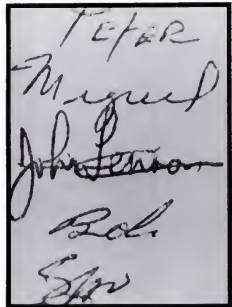 PETER
Miguel
John Lennon
Bob